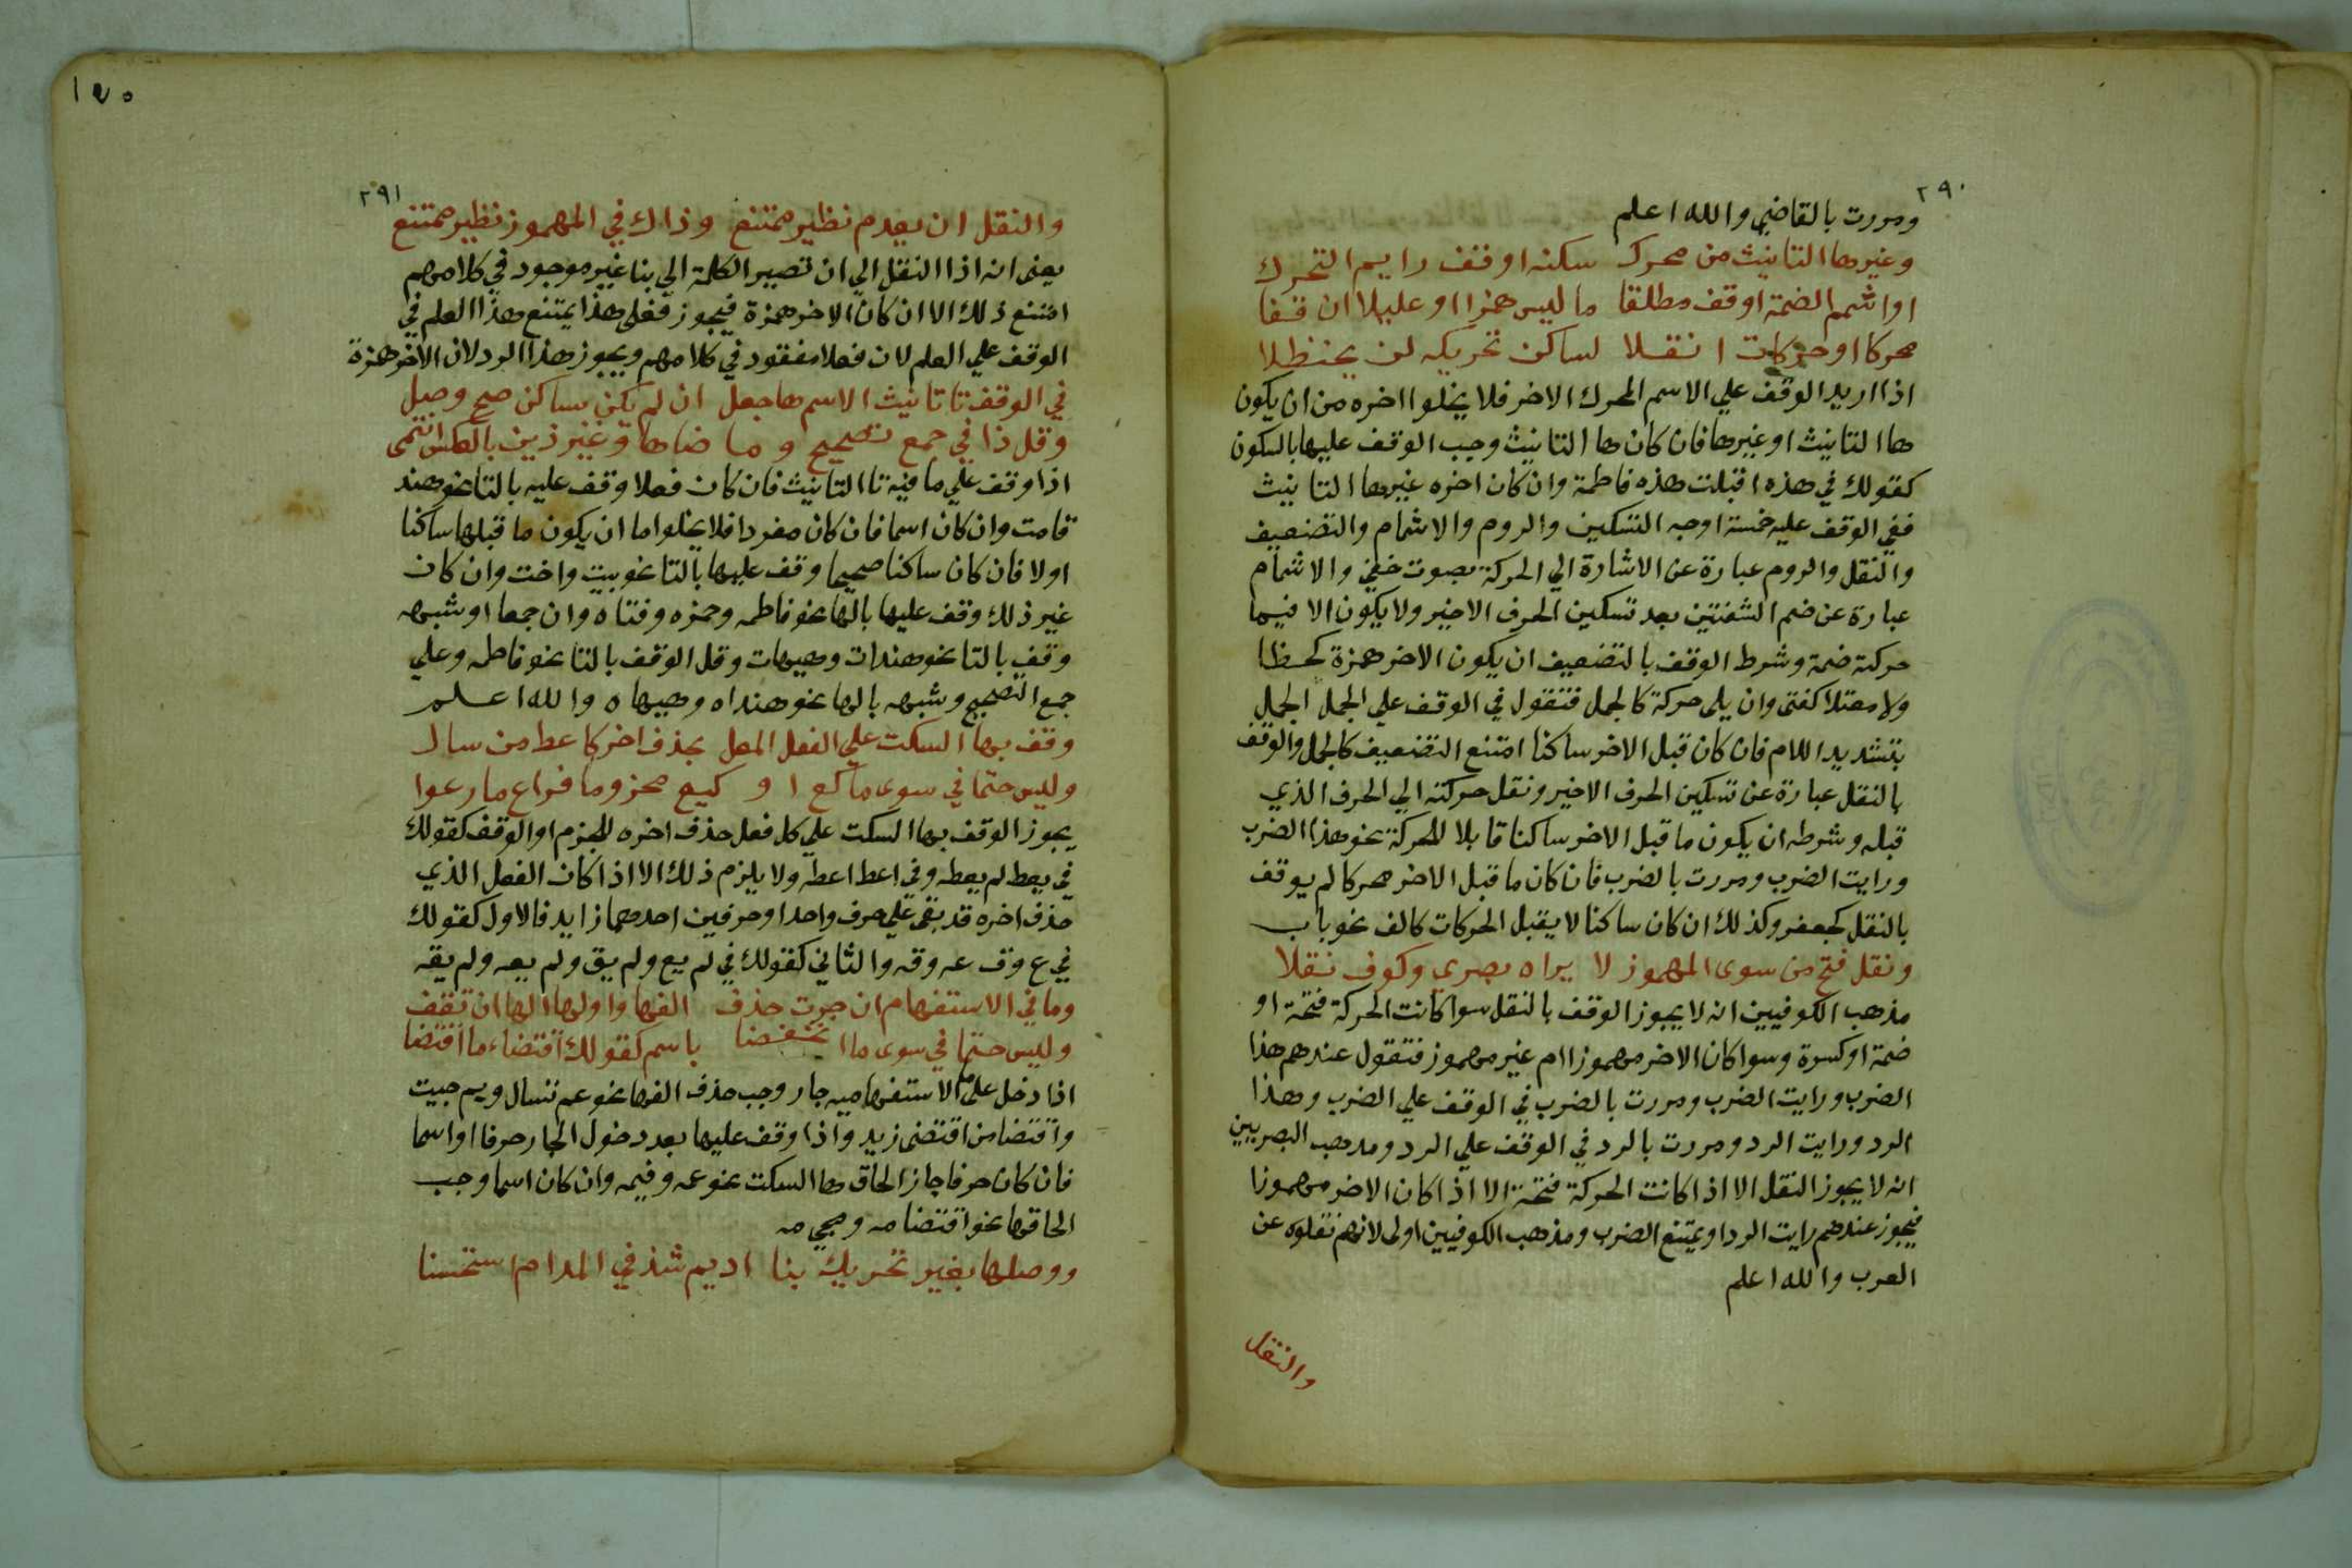 ٢٩٠
ومررت بالقاضي والله اعلم
وغيرها التانيث من محرك سكنه اوقف رايم التحرك
او اشمم الضمة اوقف مطلقا ما ليس همزا او عليلا ان قفا
محركا او حركات انقلا لساكن تحريكه لن يحنظلا
اذا اريد الوقف علي الاسم المحرك الاخر فلا يخلوا اخره من ان يكون
ها التانيث او غيرها فان كان ها التانيث وجب الوقف عليها بالسكون
كقولك في هذه اقبلت هذه فاطمة وان كان اخره غيرها التانيث
ففي الوقف عليه خمسة اوجه التسكين والروم والاشمام والتضعيف
والنقل والروم عبارة عن الاشارة الي الحركة بصوت خفي والاشمام
عبارة عن ضم الشفتين بعد تسكين الحرف الاخير ولا يكون الا فيما
حركته ضمة وشرط الوقف بالتضعيف ان يكون الاخر همزة كخطا
ولا معتلا كفتى وان يلى حركة كالجمل فتقول في الوقف علي الجمل الجمل
بتشديد اللام فان كان قبل الاخر ساكنا امتنع التضعيف كالحمل والوقف
بالنقل عبارة عن تسكين الحرف الاخير ونقل حركته الي الحرف الذي
قبله وشرطه ان يكون ما قبل الاخر ساكنا قابلا للحركة نحو هذا الضرب
ورايت الضرب ومررت بالضرب فان كان ما قبل الاخر محركا لم يوقف
بالنقل كجعفر وكذلك ان كان ساكنا لا يقبل الحركات كالف نحو باب
ونقل فتح من سوى المهموز لا يراه بصري وكوف نقلا
مذهب الكوفيين انه لا يجوز الوقف بالنقل سوا كانت الحركة فتحة او
ضمة او كسرة وسوا كان الاخر مهموزا ام غير مهموز فتقول عندهم هذا
الضرب ورايت الضرب ومررت بالضرب في الوقف علي الضرب وهذا
الرد ورايت الرد ومررت بالرد في الوقف علي الرد ومذهب البصريين
انه لا يجوز النقل الا اذا كانت الحركة فتحة الا اذا كان الاخر مهموزا
فيجوز عندهم رايت الردا ويمتنع الضرب ومذهب الكوفيين اولى لانهم نقلوه عن
العرب والله اعلم
والنقل
١٧٥
٢٩١
والنقل ان يعدم نظير ممتنع وذاك في المهموز نظير ممتنع
يعنى انه اذا النقل الي ان تصير الكلمة الي بنا غير موجود في كلامهم
امتنع ذلك الا ان كان الاخر همزة فيجوز فعلى هذا يمتنع هذا العلم في
الوقف علي العلم لان فعلا مفقود في كلامهم ويجوز هذا الرد لان الاخر همزة
في الوقف تا تانيث الاسم ها جعل ان لم يكن بساكن صح وصل
وقل ذا في جمع تصحيح وما ضاها وغير ذين بالعكس انتمى
اذا وقف علي ما فيه تا التانيث فان كان فعلا وقف عليه بالتا نحو هند
قامت وان كان اسما فان كان مفردا فلا يخلوا اما ان يكون ما قبلها ساكنا
اولا فان كان ساكنا صحيحا وقف عليها بالتا نحو بيت واخت وان كان
غير ذلك وقف عليها بالها نحو فاطمه وحمزه وفتاه وان جمعا او شبهه
وقف بالتا نحو هندات وهيهات وقل الوقف بالتا نحو فاطمه وعلي
جمع التصحيح وشبهه بالها نحو هنداه وهيهاه والله اعلم
وقف بها السكت علي الفعل المعل بحذف اخر كاعط من سال
وليس حتما في سوى ما كع او كيع محزوما فراع ما رعوا
يجوز الوقف بها السكت علي كل فعل حذف اخره للجزم او الوقف كقولك
في يعط لم يعطه وفي اعط اعطه ولا يلزم ذلك الا اذا كان الفعل الذي
حذف اخره قد بقى علي حرف واحد او حرفين احدهما زايد فالاول كقولك
في ع وق عه وقه والثاني كقولك في لم يع ولم يق ولم يعه ولم يقه
وما في الاستفهام ان جرت حذف الفها واولها الها ان تقف
وليس حتما في سوى ما انخفضا باسم كقولك اقتضاء ما اقتضا
اذا دخل علي ما الاستفهاميه جار وجب حذف الفها نحو عم تسال وبم جيت
واقتضا من اقتضى زيد واذا وقف عليها بعد دخول الجار حرفا او اسما
فان كان حرفا جاز الحاق ها السكت نحو عمه وفيمه وان كان اسما وجب
الحاقها نحو اقتضا مه ومجي مه
ووصلها بغير تحريك بنا اديم شذ في المدام استحسنا